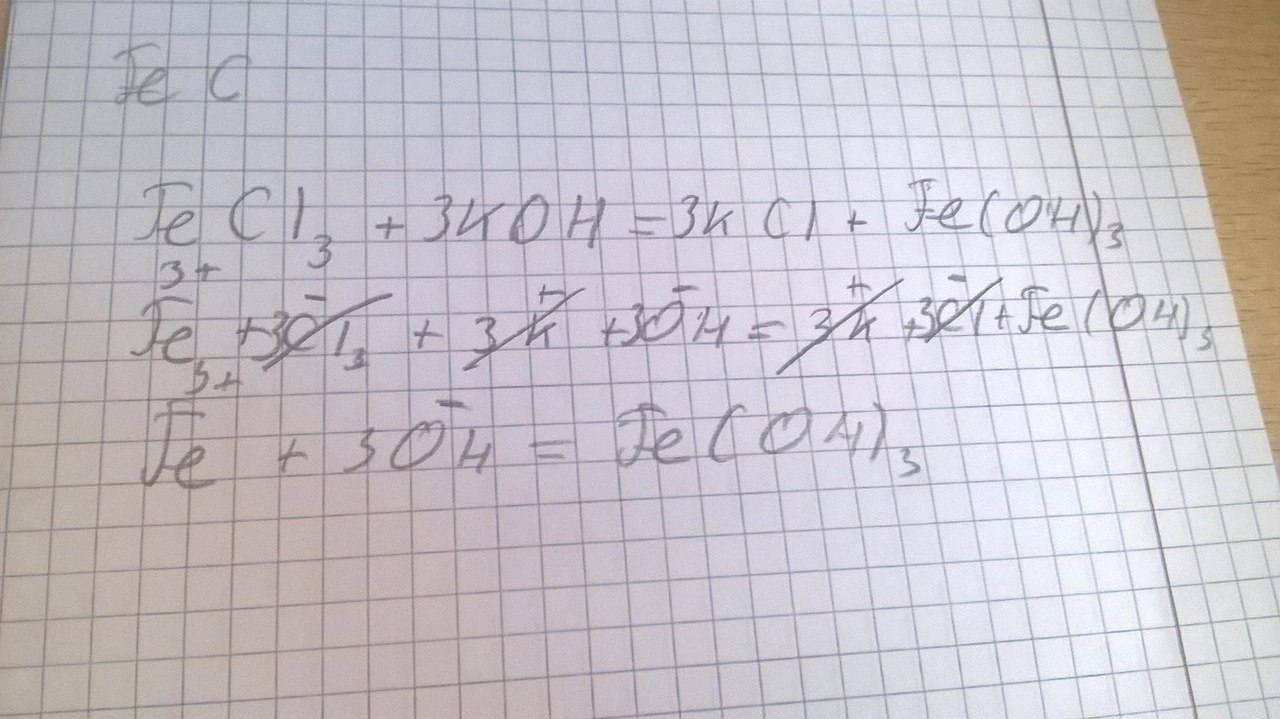 Fe C
FeCl₃ + 3KOH = 3KCl + Fe(OH)₃
Fe³⁺ + 3Cl⁻₃ + 3K⁺ + 3OH⁻ = 3K⁺ + 3Cl⁻ + Fe(OH)₃
Fe³⁺ + 3OH⁻ = Fe(OH)₃